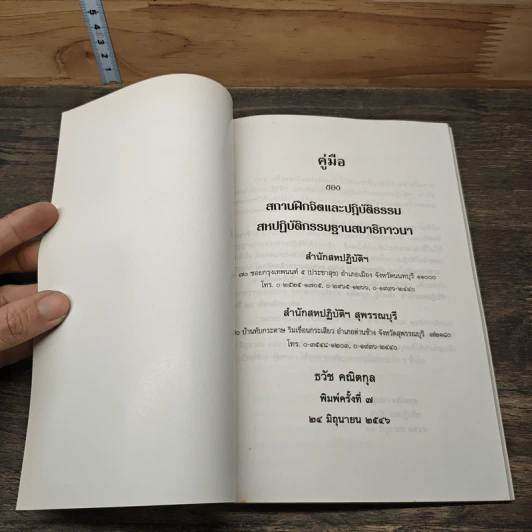 คู่มือ
ของ
สถานฝึกจิตและปฏิบัติธรรม
สหปฏิบัติกรรมฐานสมาธิภาวนา
สำนักสหปฏิบัติฯ
๗๐ ซอยกรุงเทพนนท์ ๕ (ประชาสุข) อำเภอเมือง จังหวัดนนทบุรี ๑๑๐๐๐
โทร.
สำนักสหปฏิบัติฯ สุพรรณบุรี
บ้านทับกระดาษ ริมเขื่อนกระเสียว อำเภอด่านช้าง จังหวัดสุพรรณบุรี ๗๒๑๘๐
โทร.
ธวัช คณิตกุล
พิมพ์ครั้งที่ ๗
๒๔ มิถุนายน ๒๕๔๖
5 4 3 2 1